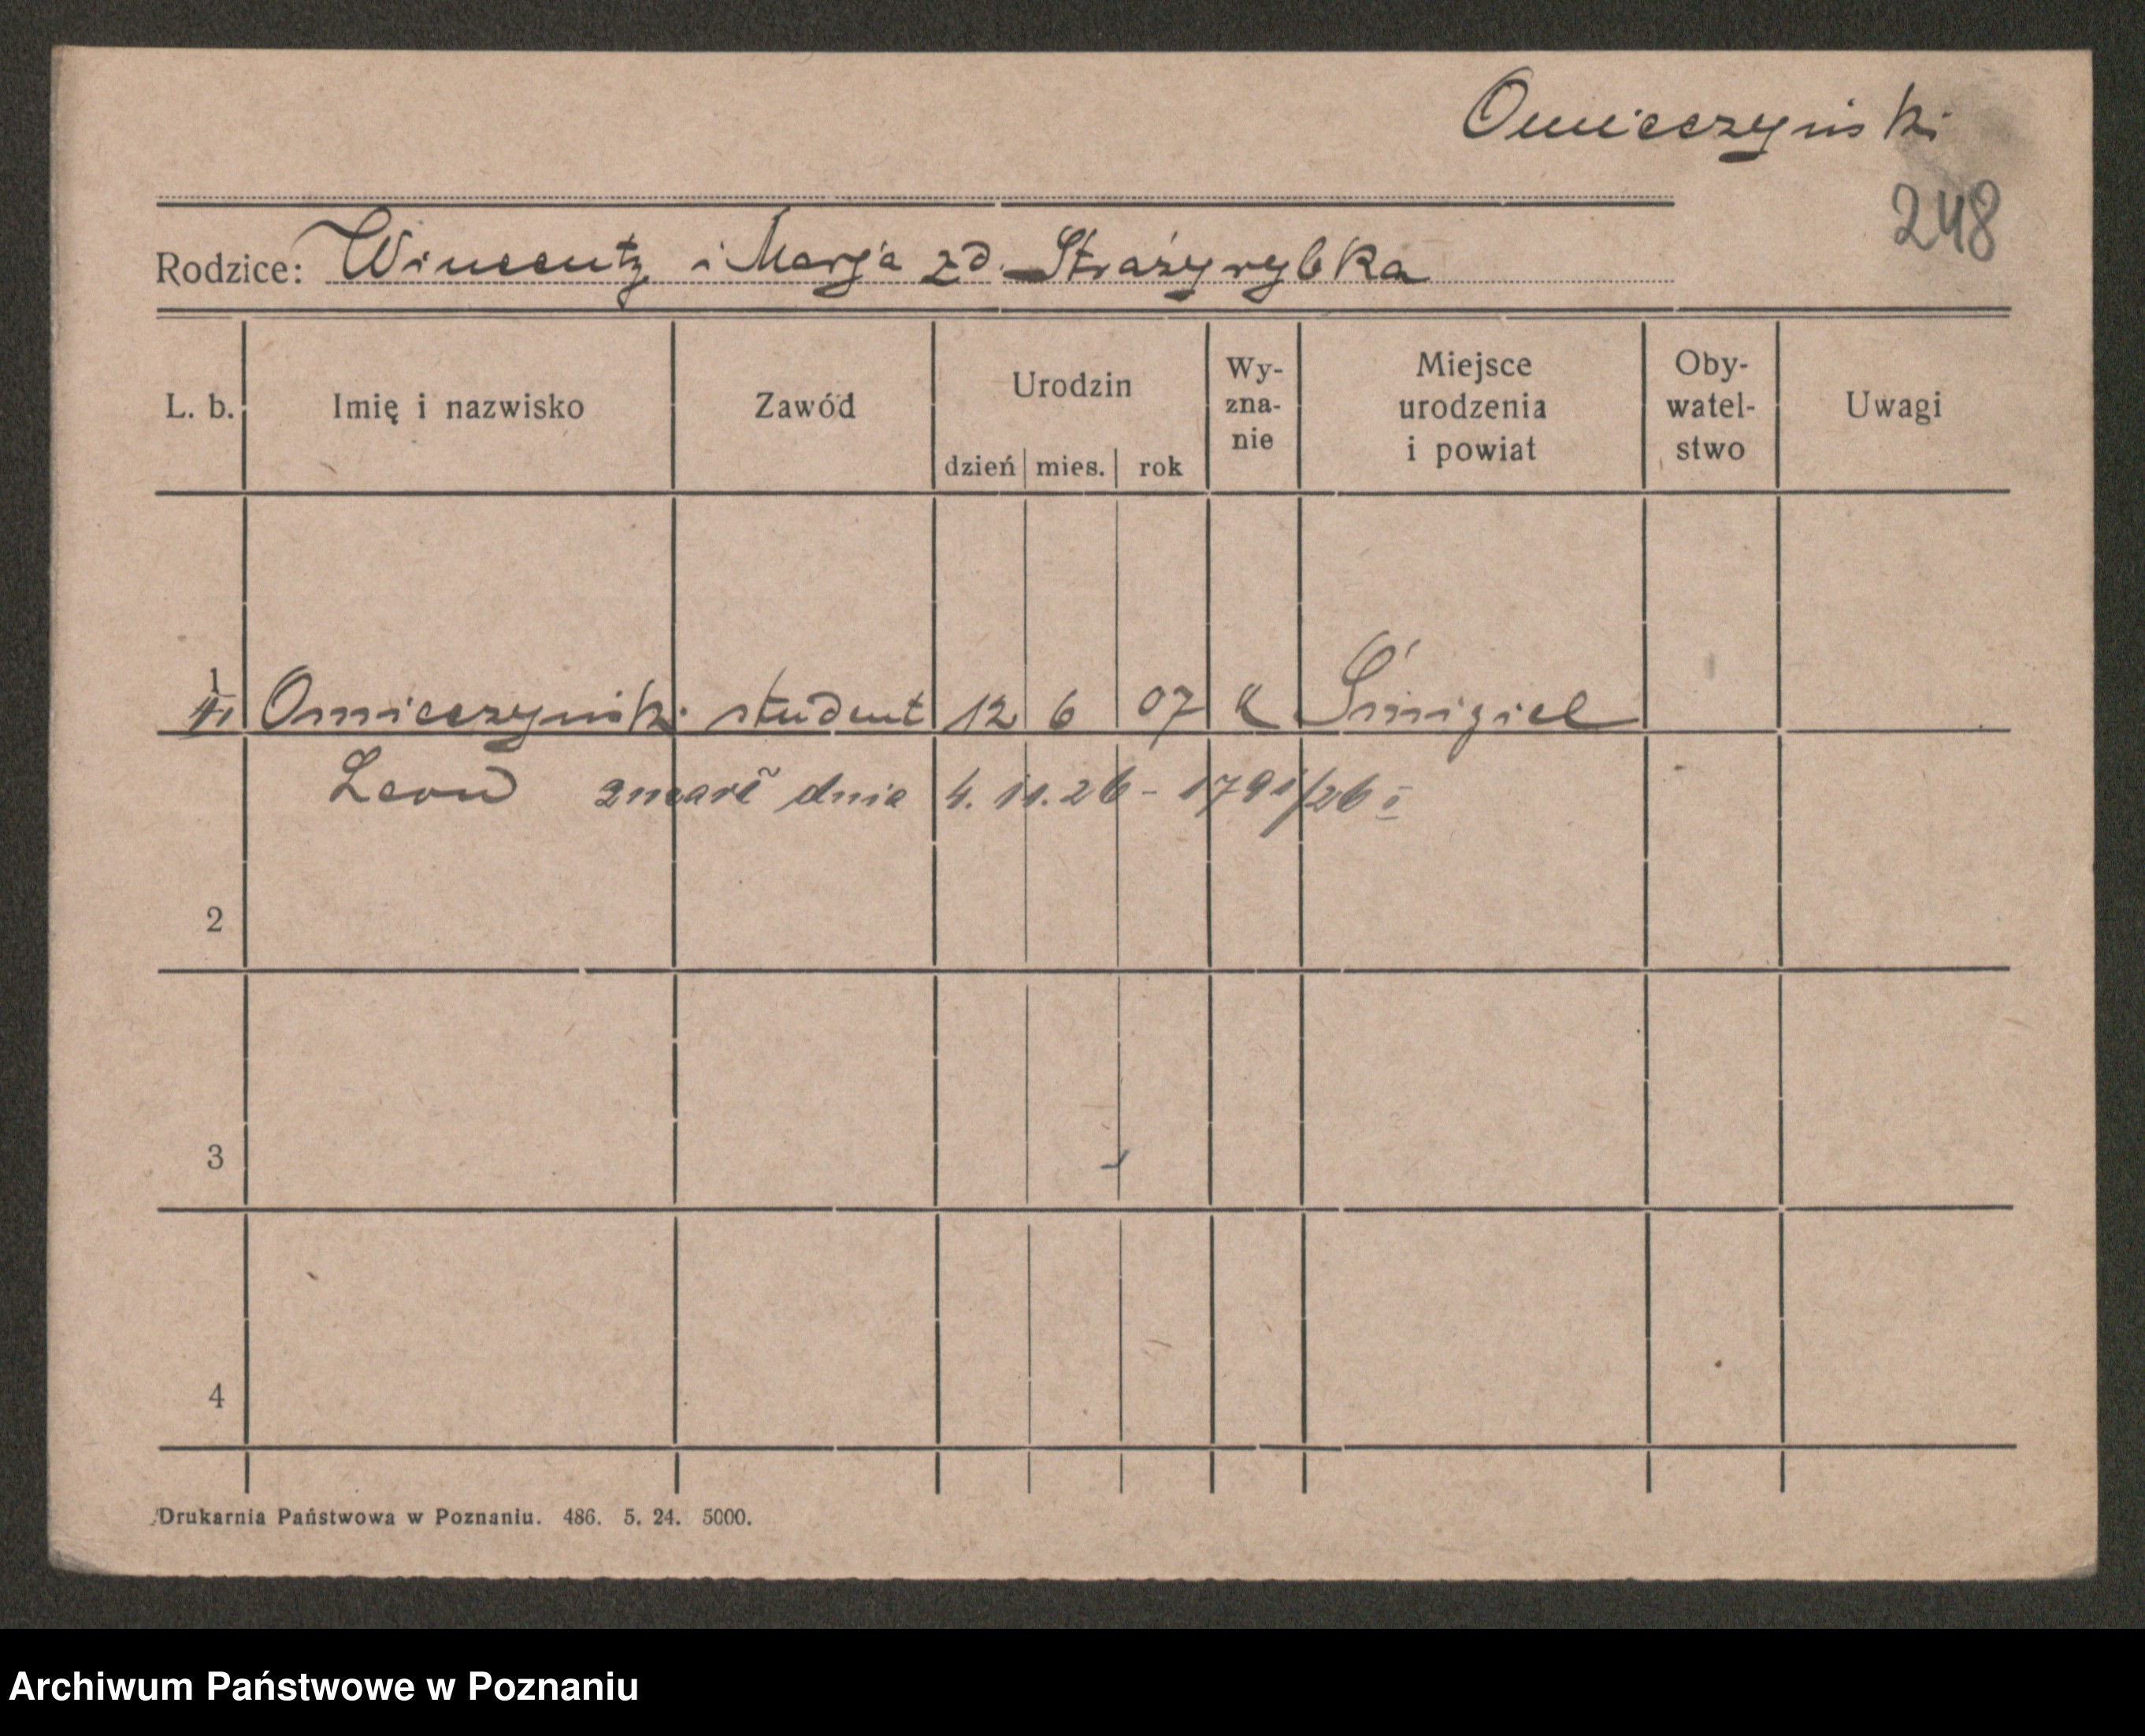 Omieczyński
248
Rodzice: Wincenty i Marja zd. Strażyrybka
L. b. Imię i nazwisko Zawód Urodzin Wy- Miejsce Oby- Uwagi
zna- urodzenia watel-
dzień mies. rok nie i powiat stwo
1 Omieczyński student 12 6 07 k Śmigiel
Leon zmarł dnia 4. 11. 26 - 1791/26 I
2
3
4
Drukarnia Państwowa w Poznaniu. 486. 5. 24. 5000.
Archiwum Państwowe w Poznaniu